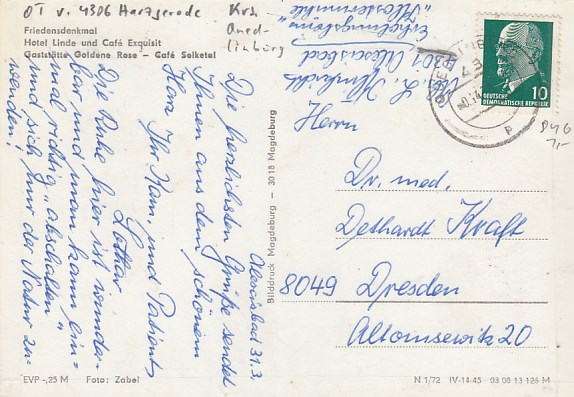 OT v. 4306 Harzgerode
Krs.
Qued-
linburg
Friedensdenkmal
Hotel Linde und Café Exquisit
Gaststätte Goldene Rose — Café Selketal
Alexisbad 31.3.
Die herzlichsten Grüße sendet
Ihnen aus dem schönen
Harz Ihr Ham. und Patient
Lothar
Die Ruhe hier ist wunder-
bar und man kann ein-
mal richtig "abschalten"
und sich nur der Natur zu-
wenden!
EVP -,25 M Foto: Zabel
Bilddruck Magdeburg — 3018 Magdeburg
Erholungsheim
"Klostermühle"
4301 Alexisbad
DEUTSCHE
DEMOKRATISCHE REPUBLIK
10
Herrn
Dr. med.
Dethardt Kraft
8049 Dresden
Altomsewitz 20
N 1/72 IV-14-45 03 08 13 126 M